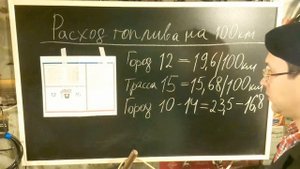 Расход топлива на 100км
Город 12 = 19,6/100км
Трасса 15 = 15,68/100км
Город 10-14 = 23,5-16,8